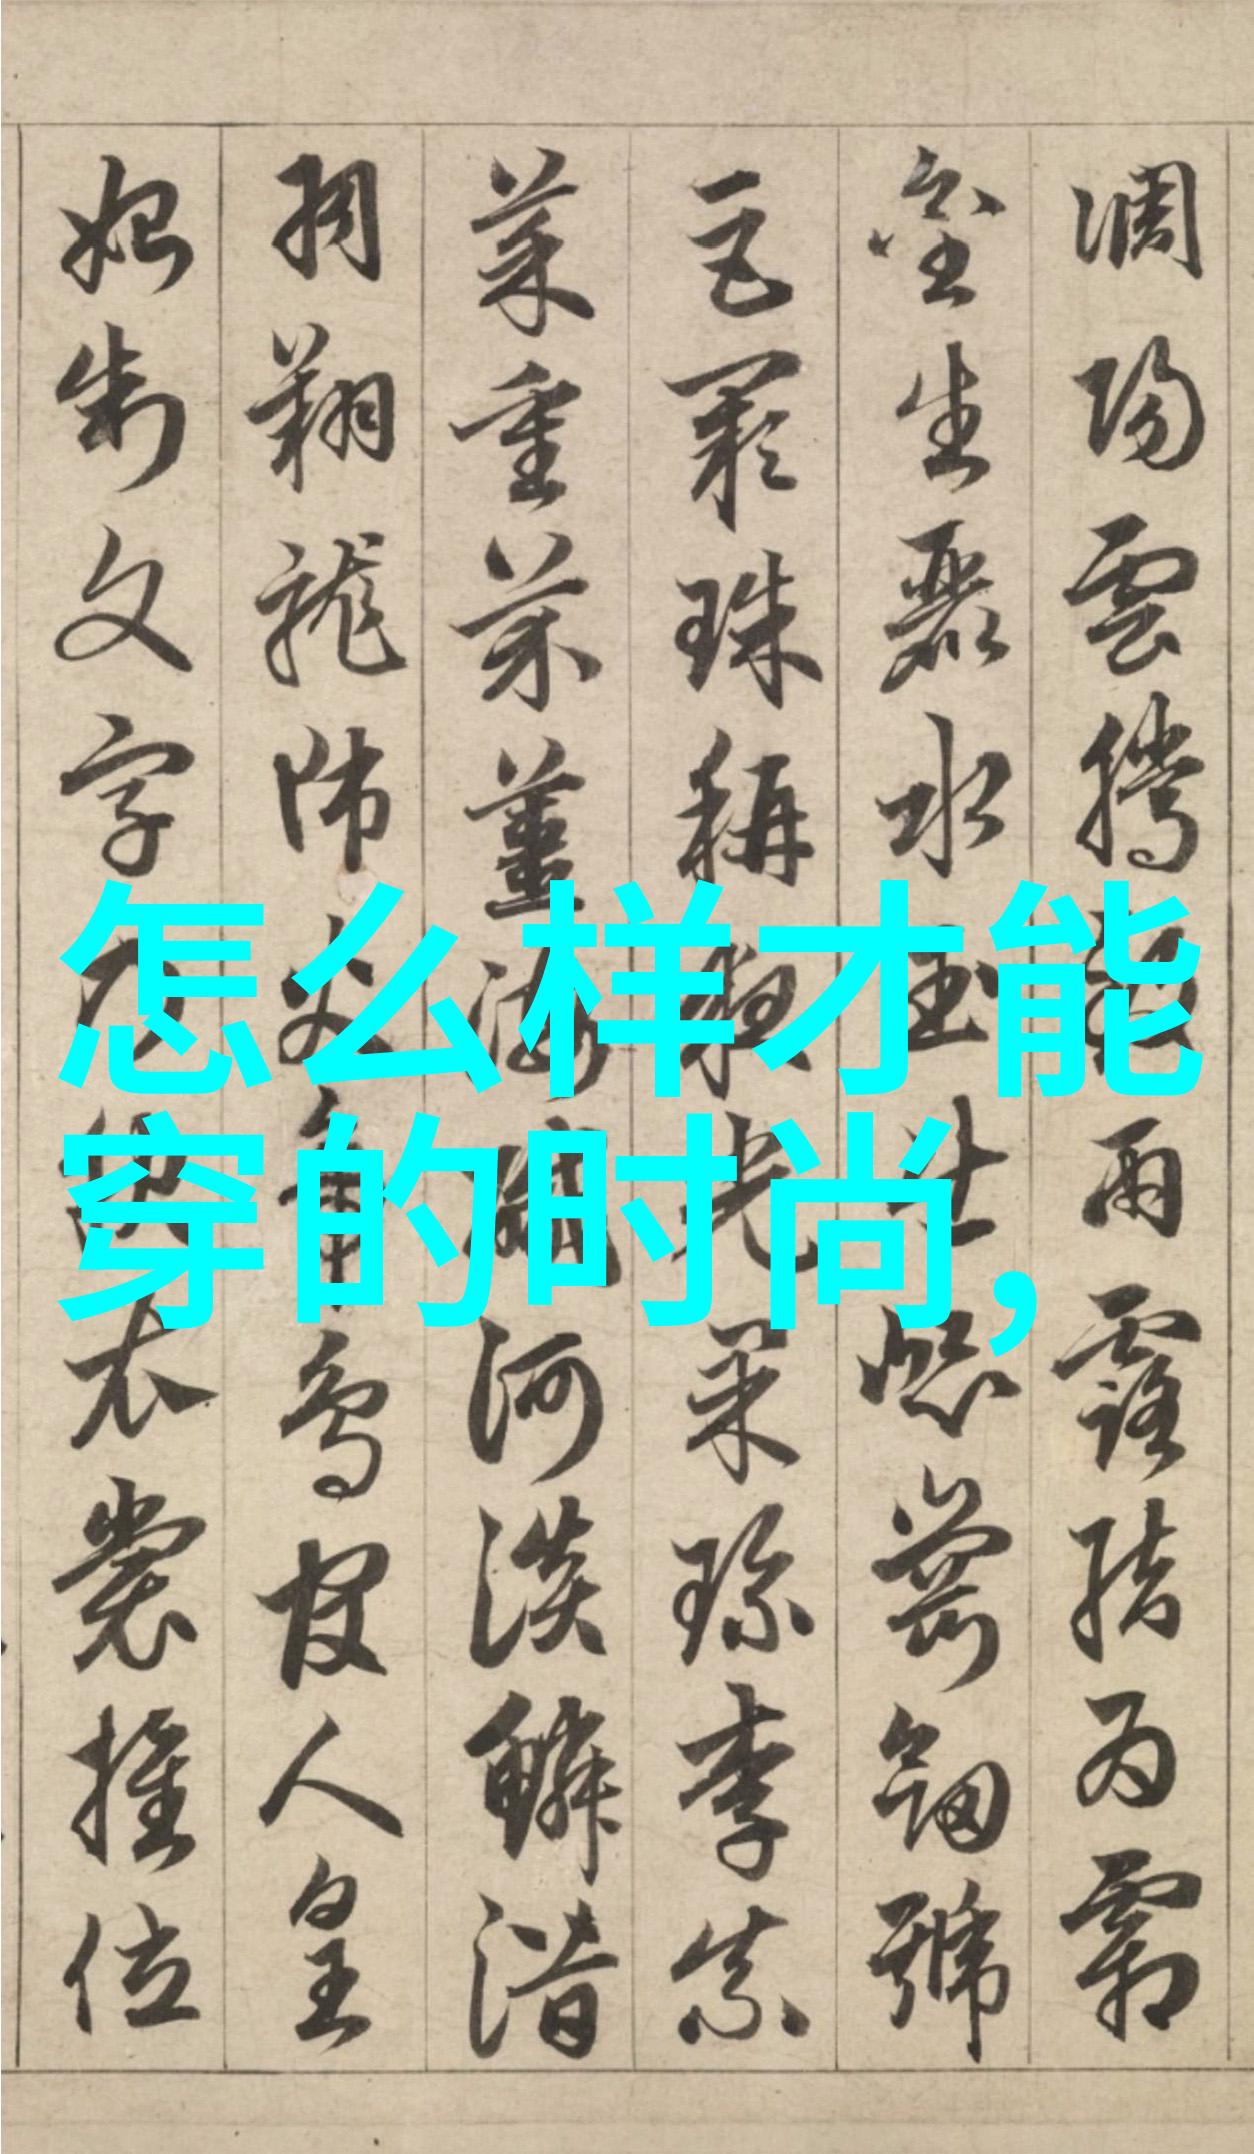 調陽雲騰致雨露結為霜
金生麗水玉出崑崗劍號
巨闕珠稱夜光果珍李柰
菜重芥薑海鹹河淡鱗潛
羽翔龍師火帝鳥官人皇
始制文字乃服衣裳推位
怎么样才能
穿的时尚,